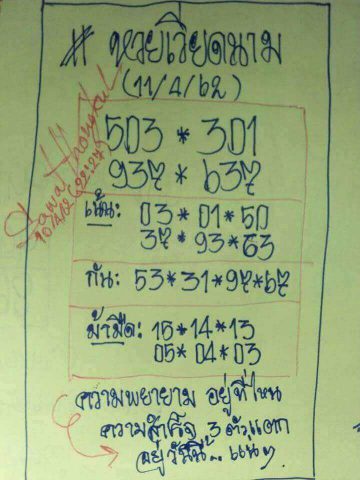 # หวยเวียดนาม
(11/4/62)
503 * 301
937 * 637
เน้น: 03 * 01 * 50
37 * 93 * 63
กัน: 53*31*97*67
ม้ามืด: 15*14*13
05* 04*03
ความพยายาม อยู่ที่ไหน
ความสำเร็จ 3 ตัวแตก
อยู่ วันนี้.. แน่ๆ
10/4/62 (22:27)